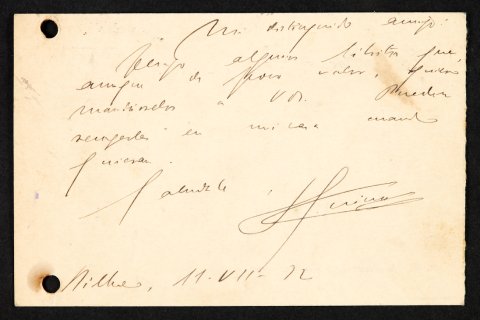 Mi distinguido amigo:
Tengo algunos libritos que,
aunque de poco valor, quiero
mandárselos a Vds. Pueden
recogerlos en mi casa cuando
quieran.
Saludale,
Bilbao, 11-VII-32